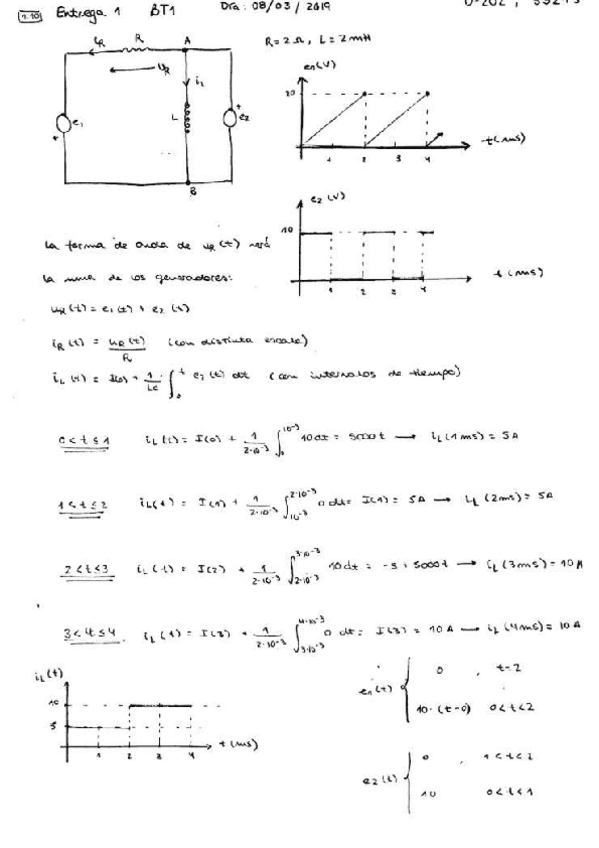 1.10 Entrega 1 BT1 Día: 08/03/2019
iR R A
uR
iL
L
e1 + + e2
B
R = 2 Ω, L = 2 mH
e1 (V)
20
1 2 3 4 t (ms)
e2 (V)
10
1 2 3 4 t (ms)
La forma de onda de uR (t) será
la suma de los generadores:
uR (t) = e1 (t) + e2 (t)
iR (t) = uR (t) / R (con distinta escala)
iL (t) = I(0) + 1/L ∫0^t e2 (t) dt (con intervalos de tiempo)
0 < t ≤ 1 iL (t) = I(0) + 1/2·10^-3 ∫0^10^-3 10 dt = 5000 t → iL (1 ms) = 5 A
1 < t ≤ 2 iL (t) = I(1) + 1/2·10^-3 ∫10^-3^2·10^-3 0 dt = I(1) = 5 A → iL (2 ms) = 5 A
2 < t ≤ 3 iL (t) = I(2) + 1/2·10^-3 ∫2·10^-3^3·10^-3 10 dt = -5 + 5000 t → iL (3 ms) = 10 A
3 < t ≤ 4 iL (t) = I(3) + 1/2·10^-3 ∫3·10^-3^4·10^-3 0 dt = I(3) = 10 A → iL (4 ms) = 10 A
iL (t)
10
5
1 2 3 4 t (ms)
e1 (t) { 0 , t = 2
10 · (t-0) 0 < t < 2
e2 (t) { 0 , 1 < t < 2
10 0 < t < 1